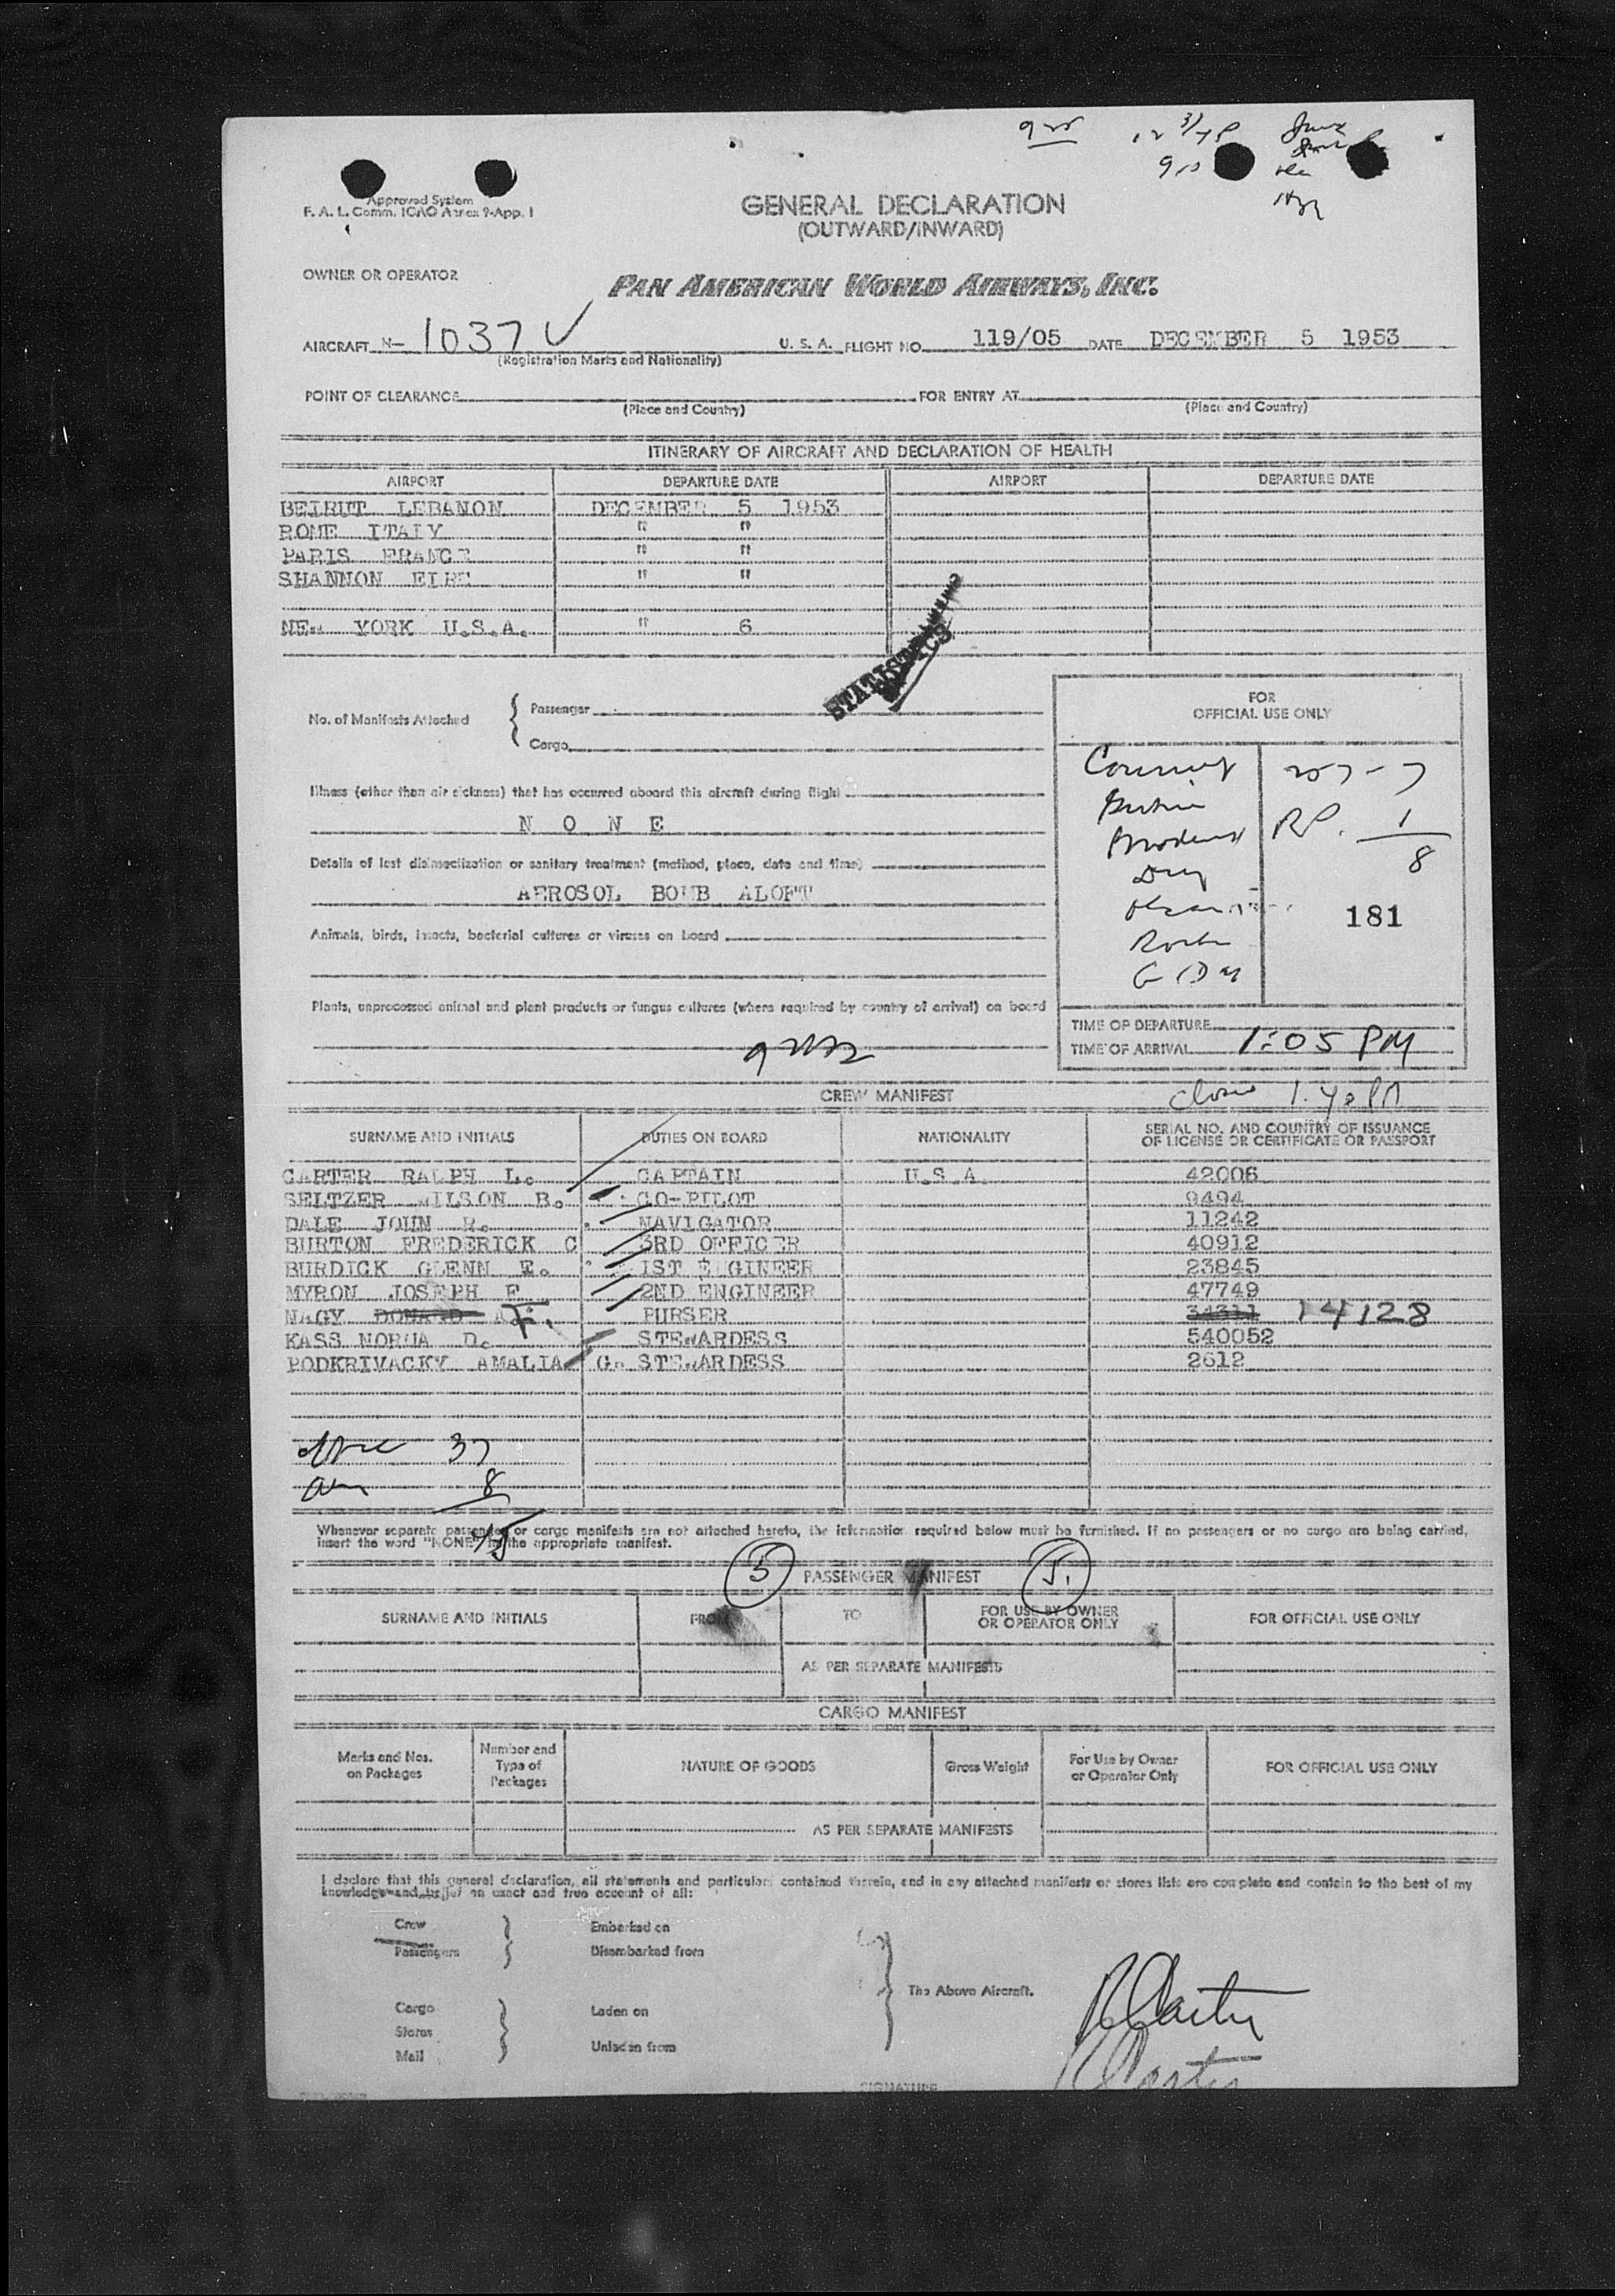 Approved System
F. A. L. Comm. ICAO Annex 9-App. I
GENERAL DECLARATION
(OUTWARD/INWARD)
OWNER OR OPERATOR
PAN AMERICAN WORLD AIRWAYS, INC.
AIRCRAFT N- 1037V U. S. A. FLIGHT NO. 119/05 DATE DECEMBER 5 1953
(Registration Marks and Nationality)
POINT OF CLEARANCE FOR ENTRY AT
(Place and Country) (Place and Country)
ITINERARY OF AIRCRAFT AND DECLARATION OF HEALTH
AIRPORT DEPARTURE DATE AIRPORT DEPARTURE DATE
BEIRUT LEBANON DECEMBER 5 1953
ROME ITALY " "
PARIS FRANCE " "
SHANNON EIRE " "
NEW YORK U.S.A. " 6
STATISTICS
No. of Manifests Attached
Passenger
Cargo
FOR
OFFICIAL USE ONLY
Illness (other than air sickness) that has occurred aboard this aircraft during flight
N O N E
Details of last disinsectization or sanitary treatment (method, place, date and time)
AEROSOL BOMB ALOFT
Animals, birds, insects, bacterial cultures or viruses on board
RP. 1
8
181
Plants, unprocessed animal and plant products or fungus cultures (where required by country of arrival) on board
TIME OF DEPARTURE
TIME OF ARRIVAL 1:05 PM
CREW MANIFEST
SURNAME AND INITIALS DUTIES ON BOARD NATIONALITY SERIAL NO. AND COUNTRY OF ISSUANCE
OF LICENSE OR CERTIFICATE OR PASSPORT
CARTER RALPH L. CAPTAIN U.S.A. 42006
SELTZER WILSON B. CO-PILOT 9494
DALE JOHN R. NAVIGATOR 11242
BURTON FREDERICK C 3RD OFFICER 40912
BURDICK GLENN E. 1ST ENGINEER 23845
MYRON JOSEPH F 2ND ENGINEER 47749
NAGY DONALD A F. PURSER 34311 14128
KASS NORMA D. STEWARDESS 540052
PODKRIVACKY AMALIA G. STEWARDESS 2612
37
8
45
Whenever separate passenger or cargo manifests are not attached hereto, the information required below must be furnished. If no passengers or no cargo are being carried,
insert the word "NONE" in the appropriate manifest.
5 PASSENGER MANIFEST 5.
SURNAME AND INITIALS FROM TO FOR USE BY OWNER
OR OPERATOR ONLY FOR OFFICIAL USE ONLY
AS PER SEPARATE MANIFESTS
CARGO MANIFEST
Marks and Nos.
on Packages Number and
Type of
Packages NATURE OF GOODS Gross Weight For Use by Owner
or Operator Only FOR OFFICIAL USE ONLY
AS PER SEPARATE MANIFESTS
I declare that this general declaration, all statements and particulars contained therein, and in any attached manifests or stores lists are complete and contain to the best of my
knowledge and belief an exact and true account of all:
Crew Embarked on
Passengers Disembarked from
The Above Aircraft.
Cargo Laden on
Stores
Mail Unladen from
R Carter
R Carter
SIGNATURE